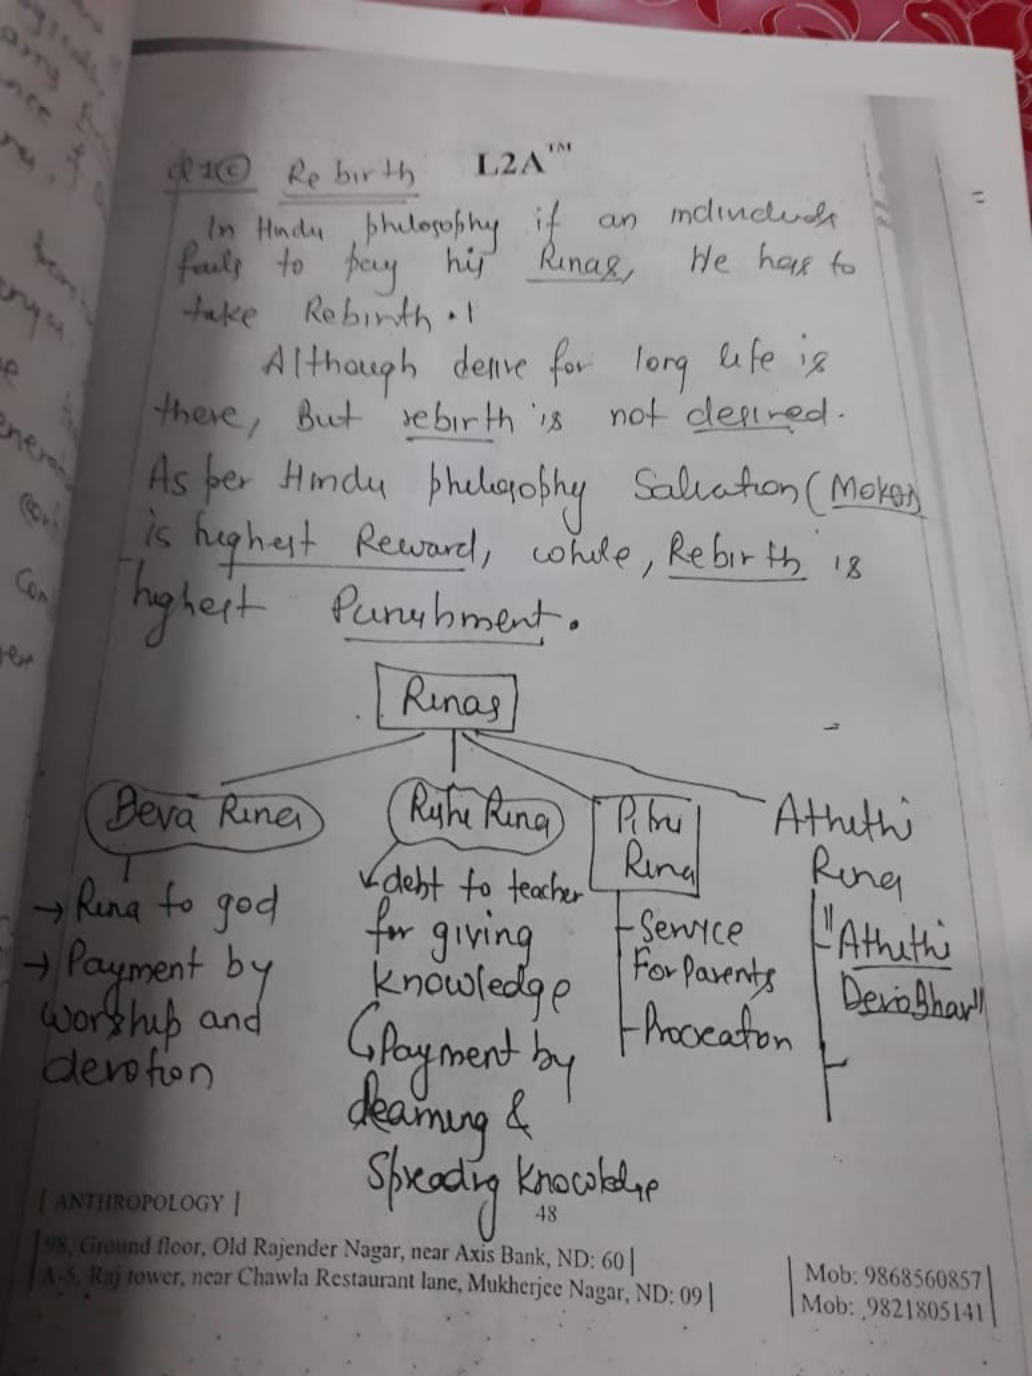 Q1(c) Rebirth L2A™
In Hindu philosophy if an individuals
fails to pay his Rinas, He has to
take Rebirth.
Although desire for long life is
there, But rebirth is not desired.
As per Hindu philosophy Salvation (Moksa)
is highest Reward, while, Rebirth is
highest Punishment.
Rinas
Deva Rina
→ Rina to god
→ Payment by
worship and
devotion
Rishi Rina
debt to teacher
for giving
knowledge
Payment by
learning &
Spreading knowledge
Pitru
Rina
Service
For Parents
Procreation
Athithi
Rina
"Athithi
Devo Bhav"
| ANTHROPOLOGY |
48
98, Ground floor, Old Rajender Nagar, near Axis Bank, ND: 60 |
A-5, Raj tower, near Chawla Restaurant lane, Mukherjee Nagar, ND: 09 |
Mob: 9868560857
Mob: 9821805141